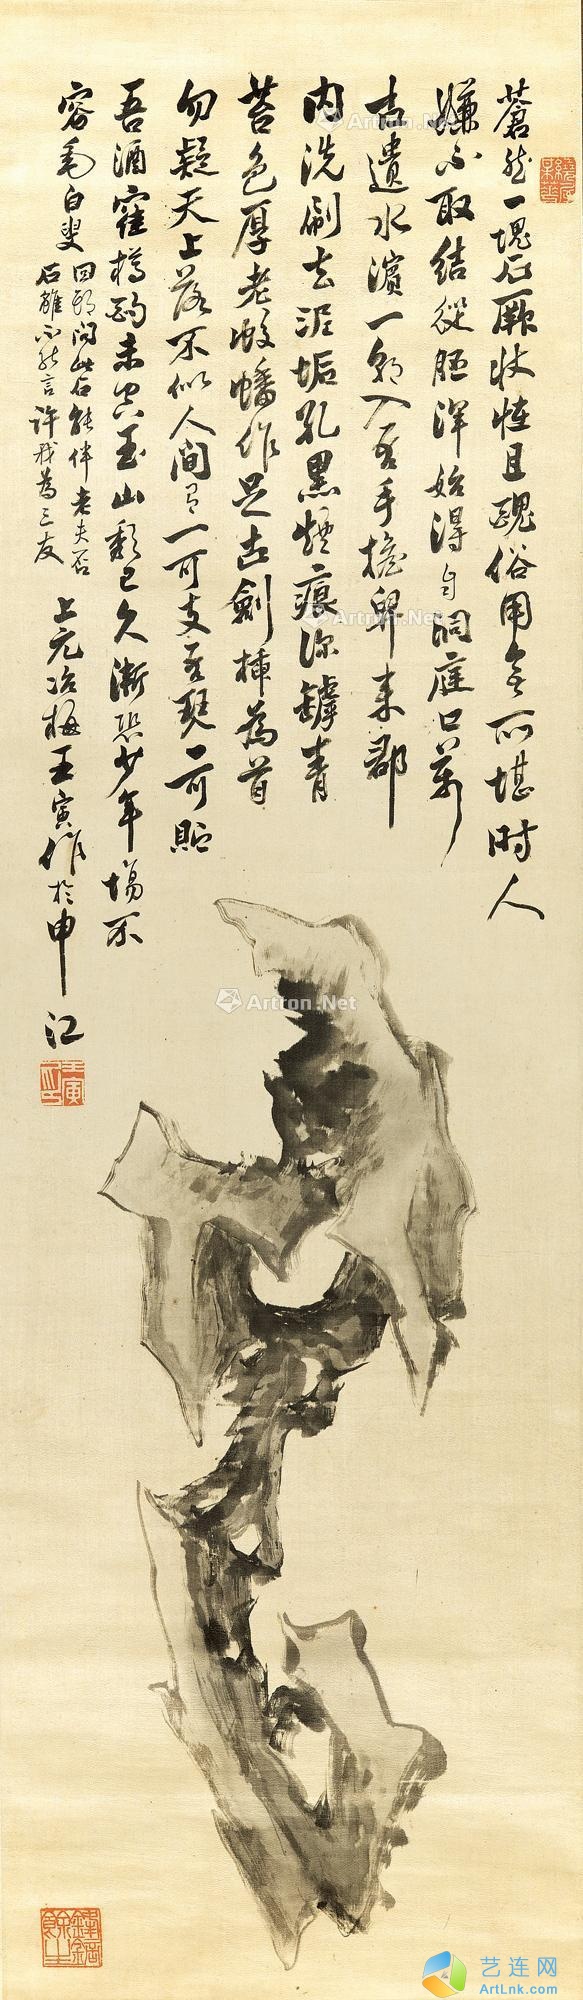 蒼然一塊石厥狀怪且醜俗用無所堪時人
嫌不取結從胚渾始得自洞庭口萬
古遺水濱一朝入吾手擔舁來郡
内洗刷去泥垢孔黑煙痕深罅青
苔色厚老蛟蟠作足古劍插為首
勿疑天上落不似人間有一可支吾琴一可貯
吾酒窪樽酌未空玉山頹已久漸恐少年場不
容毛白叟
回頭問此石能伴老夫否
石雖不能言許我為三友
上元冶梅王寅作於申江
王寅
Artron.Net
Artron.Net
Artron.Net
Artron.Net
Artron.Net
艺连网
ArtLnk.com